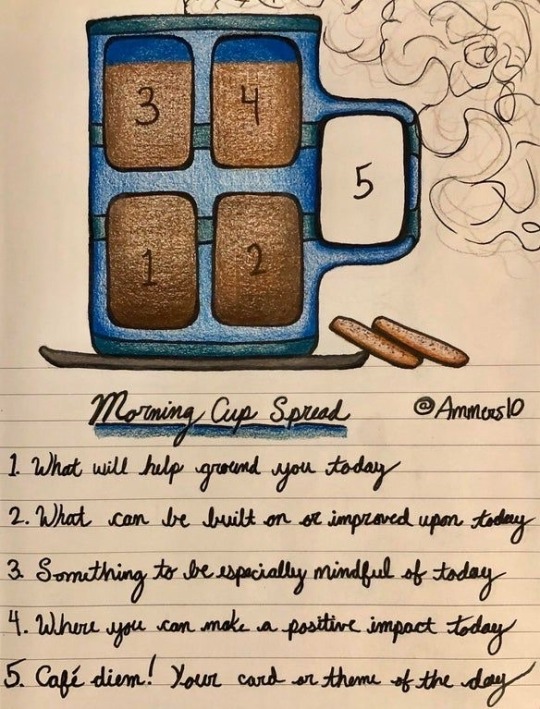 3 4
5
1 2
Morning Cup Spread @Ammers10
1. What will help ground you today
2. What can be built on or improved upon today
3. Something to be especially mindful of today
4. Where you can make a positive impact today
5. Café diem! Your card or theme of the day